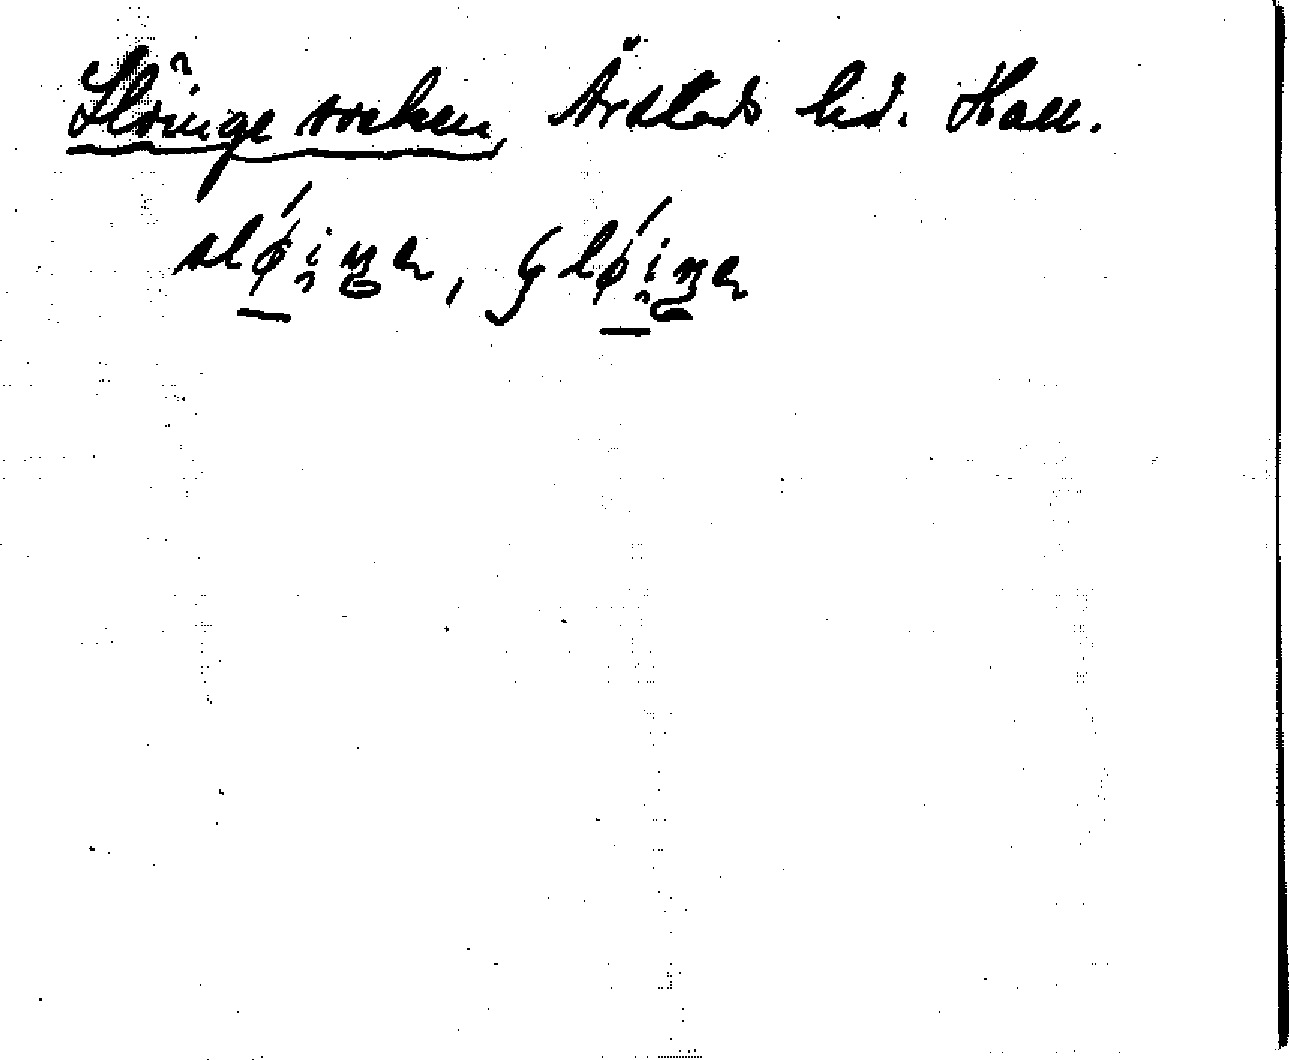 Slöinge socken, Årstads hd. Hall.
slǿi̯ŋə, ʃlǿi̯ŋə